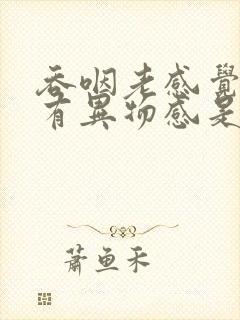 吞咽老感覺
有異物感是
蕭魚禾